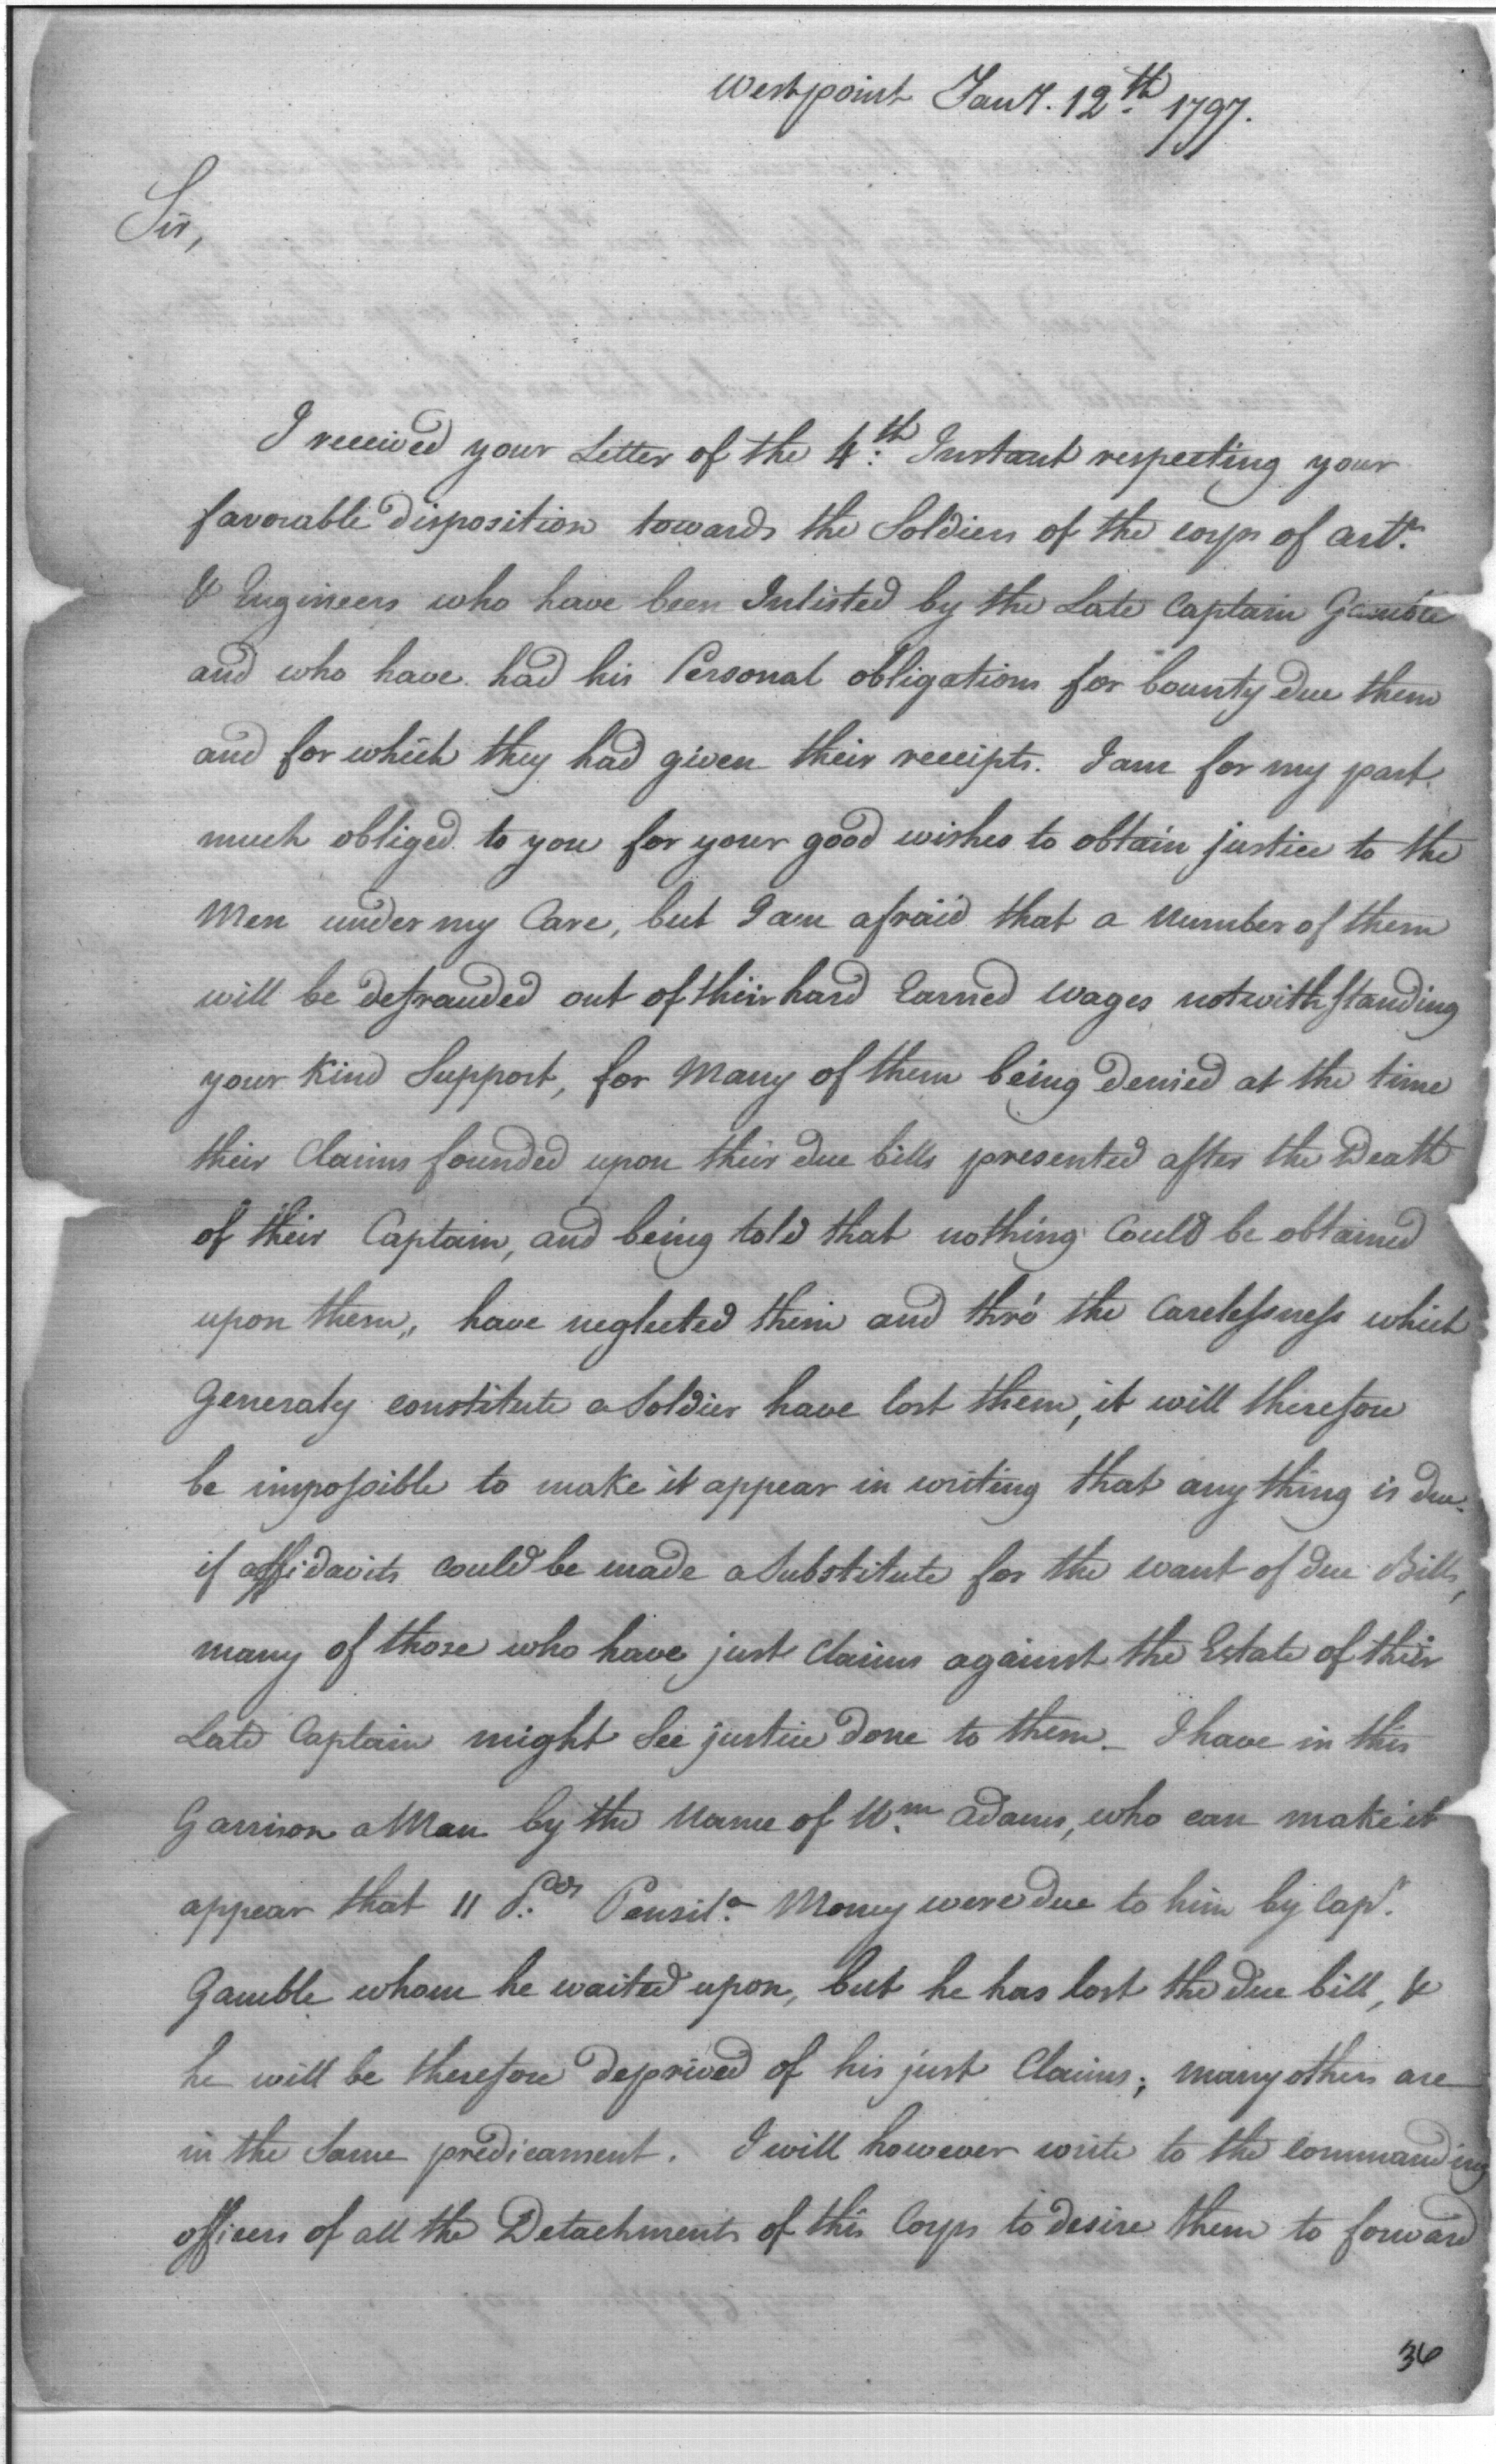 Westpoint Jany. 12th. 1797.
Sir,
I received your Letter of the 4th. Instant respecting your
favorable disposition towards the Soldiers of the corps of arty.
& Engineers who have been Inlisted by the Late Captain Gamble
and who have had his Personal obligations for bounty due them
and for which they had given their receipts. I am for my part
much obliged to you for your good wishes to obtain justice to the
Men under my Care, but I am afraid that a Number of them
will be defrauded out of their hard Earned wages notwithstanding
your Kind Support, for Many of them being denied at the time
their Claims founded upon their due bills presented after the Death
of their Captain, and being told that nothing Could be obtained
upon them,, have neglected them and thro' the Carelessness which
Generaly constitute a Soldier have lost them, it will therefore
be impossible to make it appear in writing that any thing is due.
if affidavits could be made a Substitute for the want of due Bills,
many of those who have just Claims against the Estate of their
Late Captain might See justice done to them_ I have in this
Garrison a Man by the Name of Wm. Adams, who can make it
appear that 11 Pds. Pensila. Money were due to him by Capn.
Gamble whom he waited upon, but he has lost the due bill, &
he will be therefore deprived of his just Claims; many others are
in the Same predicament. I will however write to the Commanding
officers of all the Detachments of this Corps to desire them to forward
36